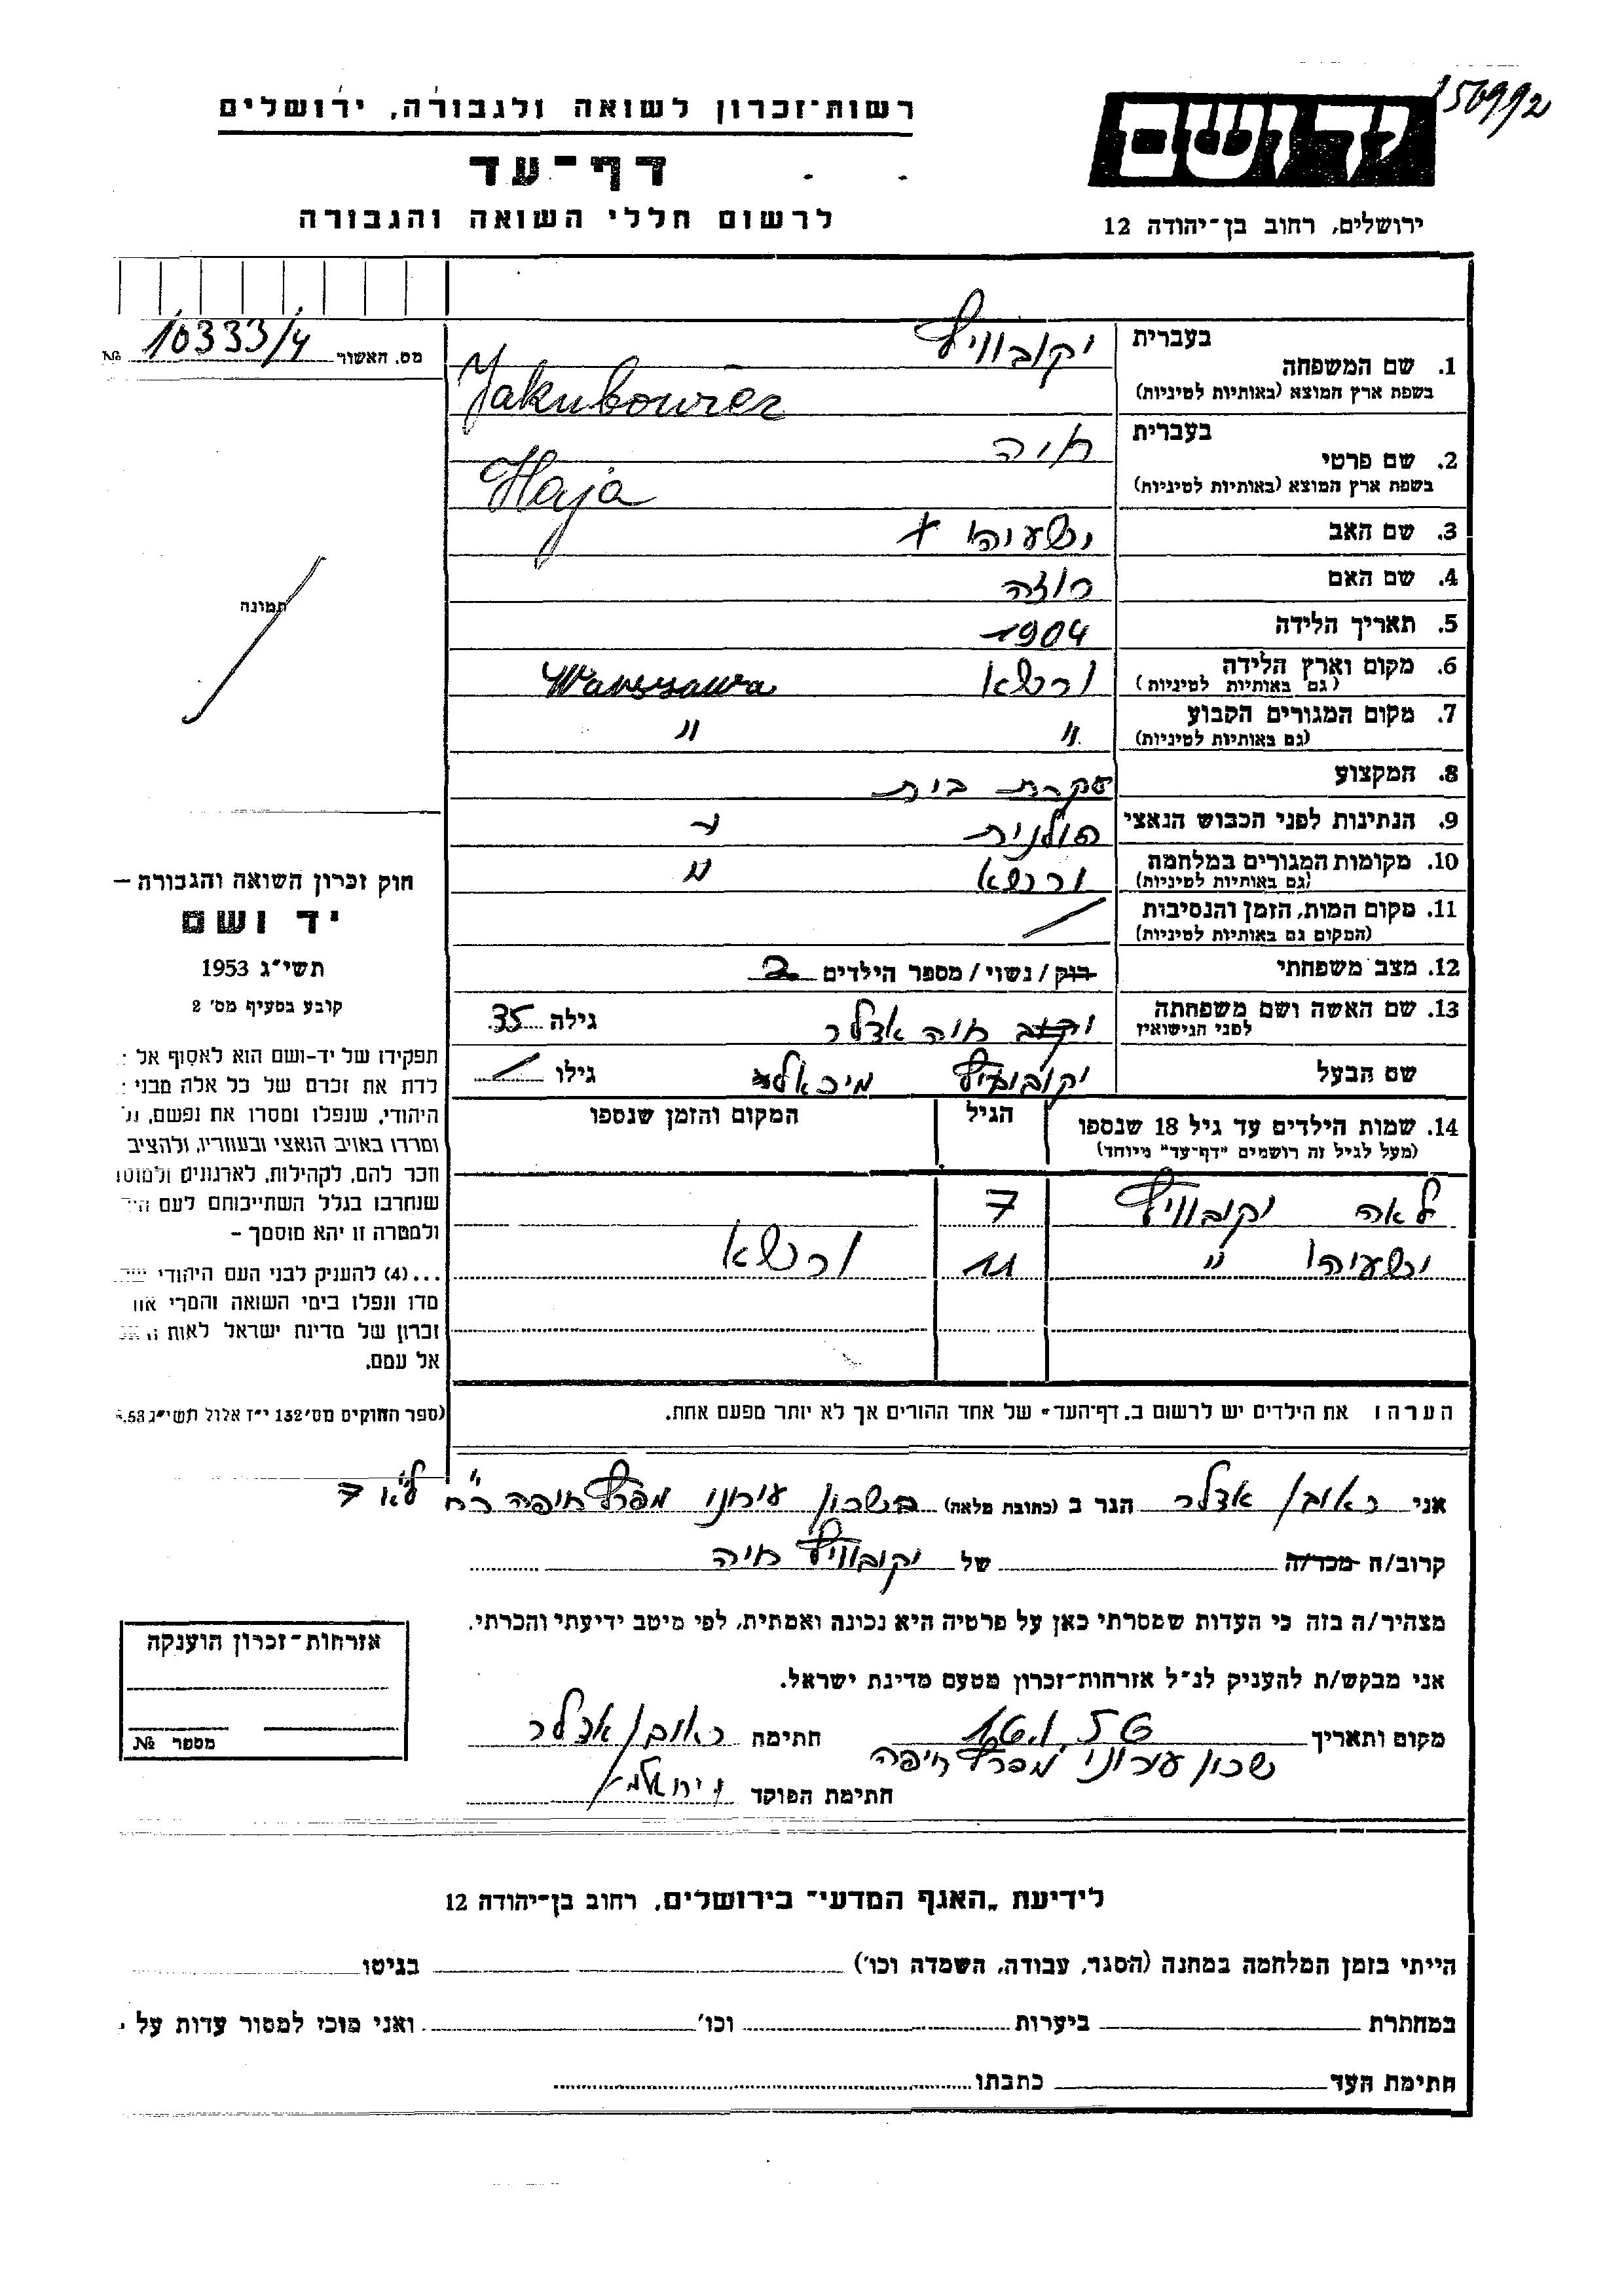 156992
רשות-זכרון לשואה ולגבורה, ירושלים
יד ושם
דף-עד
לרשום חללי השואה והגבורה
ירושלים, רחוב בן-יהודה 12
מס. האשור 10333/4 №
בעברית יקובוויץ
1. שם המשפחה
בשפת ארץ המוצא (באותיות לטיניות) Jakubowicz
בעברית חיה
2. שם פרטי
בשפת ארץ המוצא (באותיות לטיניות) Haja
3. שם האב ישעיהו
4. שם האם רוזה
תמונה
5. תאריך הלידה 1904
6. מקום וארץ הלידה ורשא Warszawa
(גם באותיות לטיניות)
7. מקום המגורים הקבוע " "
(גם באותיות לטיניות)
8. המקצוע עקרת בית
9. הנתינות לפני הכבוש הנאצי פולנית
10. מקומות המגורים במלחמה ורשא "
(גם באותיות לטיניות)
11. מקום המות, הזמן והנסיבות
(המקום גם באותיות לטיניות)
12. מצב משפחתי רוק / נשוי / מספר הילדים 2
13. שם האשה ושם משפחתה חיה אדלר גילה 35
לפני הנישואין
שם הבעל יקובוביץ מיכאל גילו
14. שמות הילדים עד גיל 18 שנספו הגיל המקום והזמן שנספו
(מעל לגיל זה רושמים "דף-עד" מיוחד)
לאה יקובוויץ 7
ישעיהו " 11 ורשא
הערה: את הילדים יש לרשום ב"דף-העד" של אחד ההורים אך לא יותר מפעם אחת.
חוק זכרון השואה והגבורה –
יד ושם
תשי"ג 1953
קובע בסעיף מס' 2
תפקידו של יד-ושם הוא לאסוף אל
לדת את זכרם של כל אלה מבני
היהודי, שנפלו ומסרו את נפשם,
ומרדו באויב הנאצי ובעוזריו, ולהציב
וזכר להם, לקהילות, לארגונים
שנחרבו בגלל השתייכותם לעם
ולמטרה זו יהא מוסמך –
...(4) להעניק לבני העם היהודי
מדו ונפלו בימי השואה והמרי
זכרון של מדינת ישראל לאות
אל עמם.
(ספר החוקים מס' 132 י"ז אלול תשי"ג
אני ראובן אדלר הגר ב (כתובת מלאה) בשכון עירוני מפרץ חיפה רח' ל"א 7
קרוב/ה מכר/ה של יקובוויץ חיה
מצהיר/ה בזה כי העדות שמסרתי כאן על פרטיה היא נכונה ואמתית, לפי מיטב ידיעתי והכרתי.
אני מבקש/ת להעניק לנ"ל אזרחות-זכרון מטעם מדינת ישראל.
מקום ותאריך חתימה ראובן אדלר
שכון עירוני מפרץ חיפה
חתימת הפוקד
אזרחות-זכרון הוענקה
מספר №
לידיעת "האגף המדעי" בירושלים, רחוב בן-יהודה 12
הייתי בזמן המלחמה במחנה (הסגר, עבודה, השמדה וכו') בגיטו
במחתרת ביערות וכו' ואני מוכן למסור עדות על
חתימת העד כתבתו